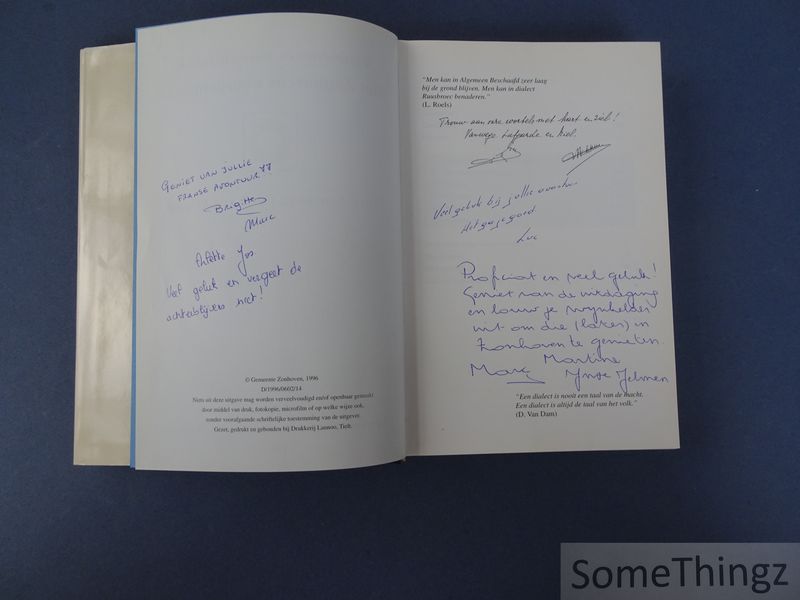 GENIET VAN JULLIE
FRANSE AVONTUUR !!
Brigitte
Marc
Jos
Veel geluk en vergeet de
achterblijvers niet!
© Gemeente Zonhoven, 1996
D/1996/0662/14
Niets uit deze uitgave mag worden verveelvoudigd en/of openbaar gemaakt
door middel van druk, fotokopie, microfilm of op welke wijze ook,
zonder voorafgaande schriftelijke toestemming van de uitgever.
Gezet, gedrukt en gebonden bij Drukkerij Lannoo, Tielt.
"Men kan in Algemeen Beschaafd zeer laag
bij de grond blijven. Men kan in dialect
Ruusbroec benaderen."
(L. Roels)
Trouw aan onze wortels met hart en ziel!
Vanwege en
Veel geluk bij jullie avontuur
Het ga je goed
Luc
Proficiat en veel geluk!
Geniet van de uitdaging
en bouw je wijnkelder
uit om die (later) in
Zonhoven te genieten
Martine
Marc Jelmen
"Een dialect is nooit een taal van de macht.
Een dialect is altijd de taal van het volk."
(D. Van Dam)
SomeThingz